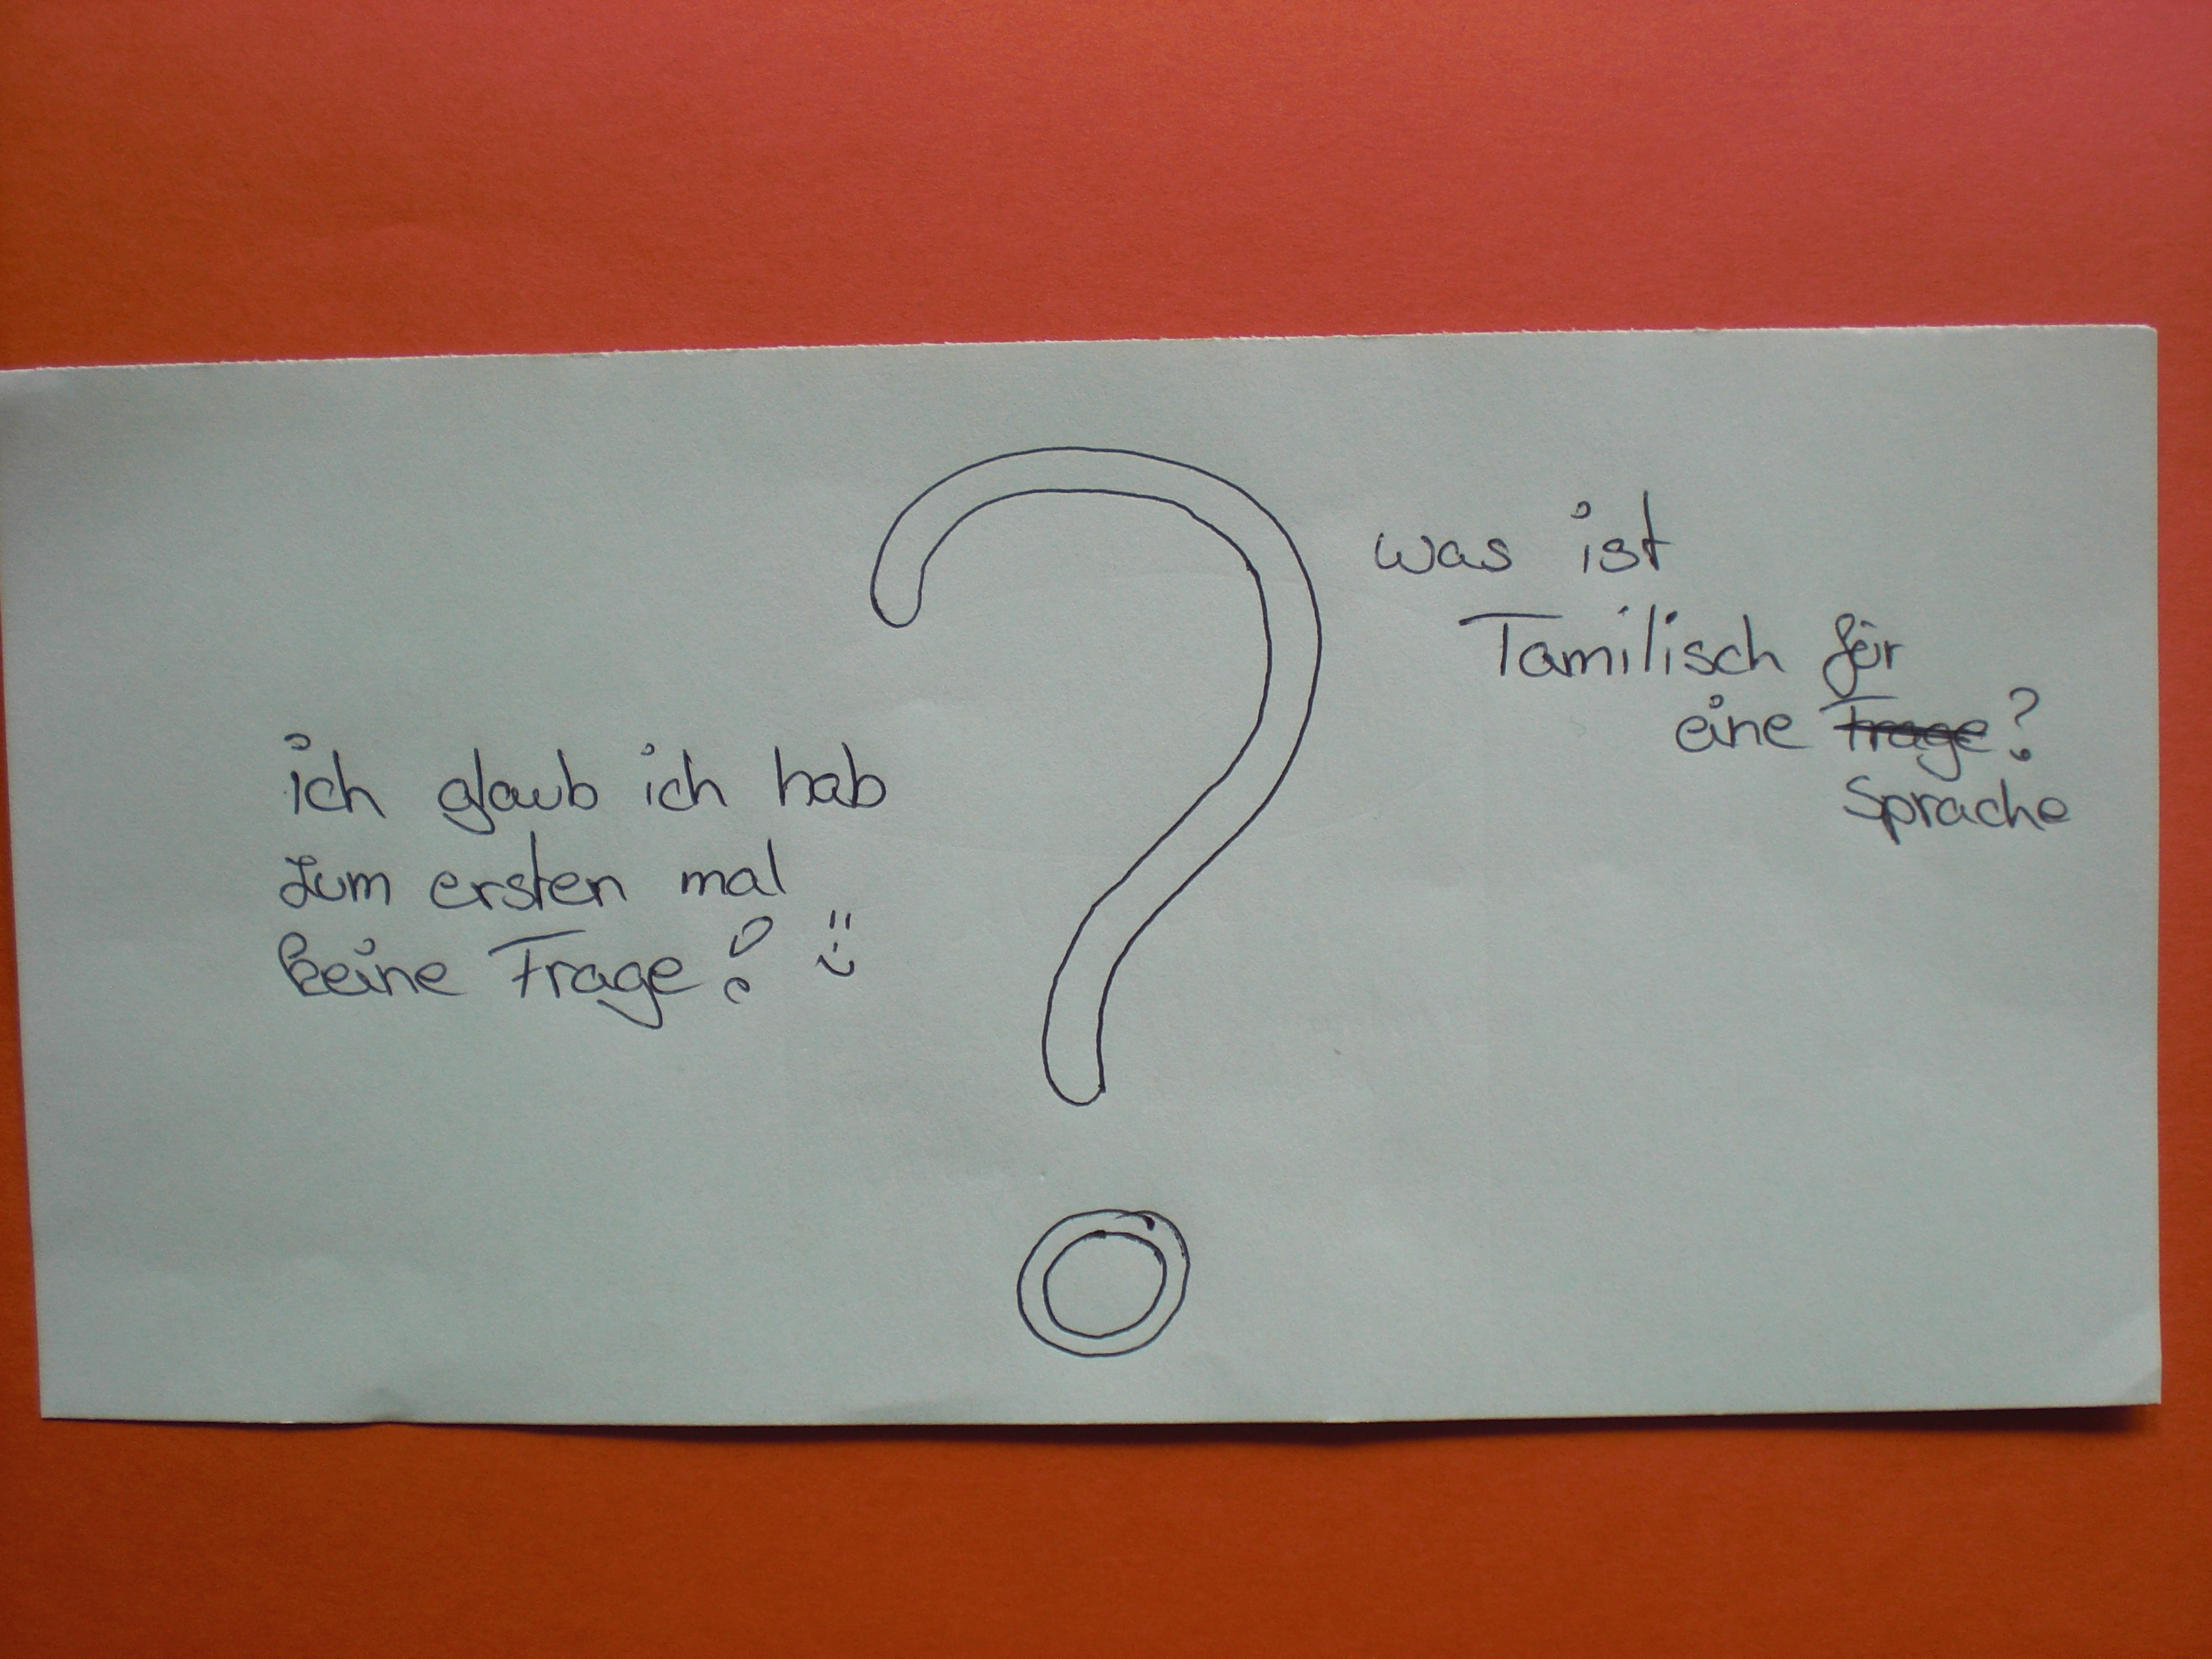 ich glaub ich hab
zum ersten mal
keine Frage!
?
was ist
Tamilisch für
eine Frage?
Sprache